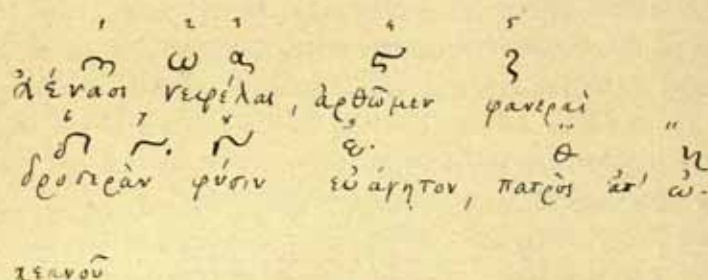 1 2 3 4 5
ω α ξ
ἀέναοι νεφέλαι, ἀρθῶμεν φανεραὶ
6 7
θ η
δροσερὰν φύσιν εὐάγητον, πατρὸς ἀπ' ὠ-
κεανοῦ